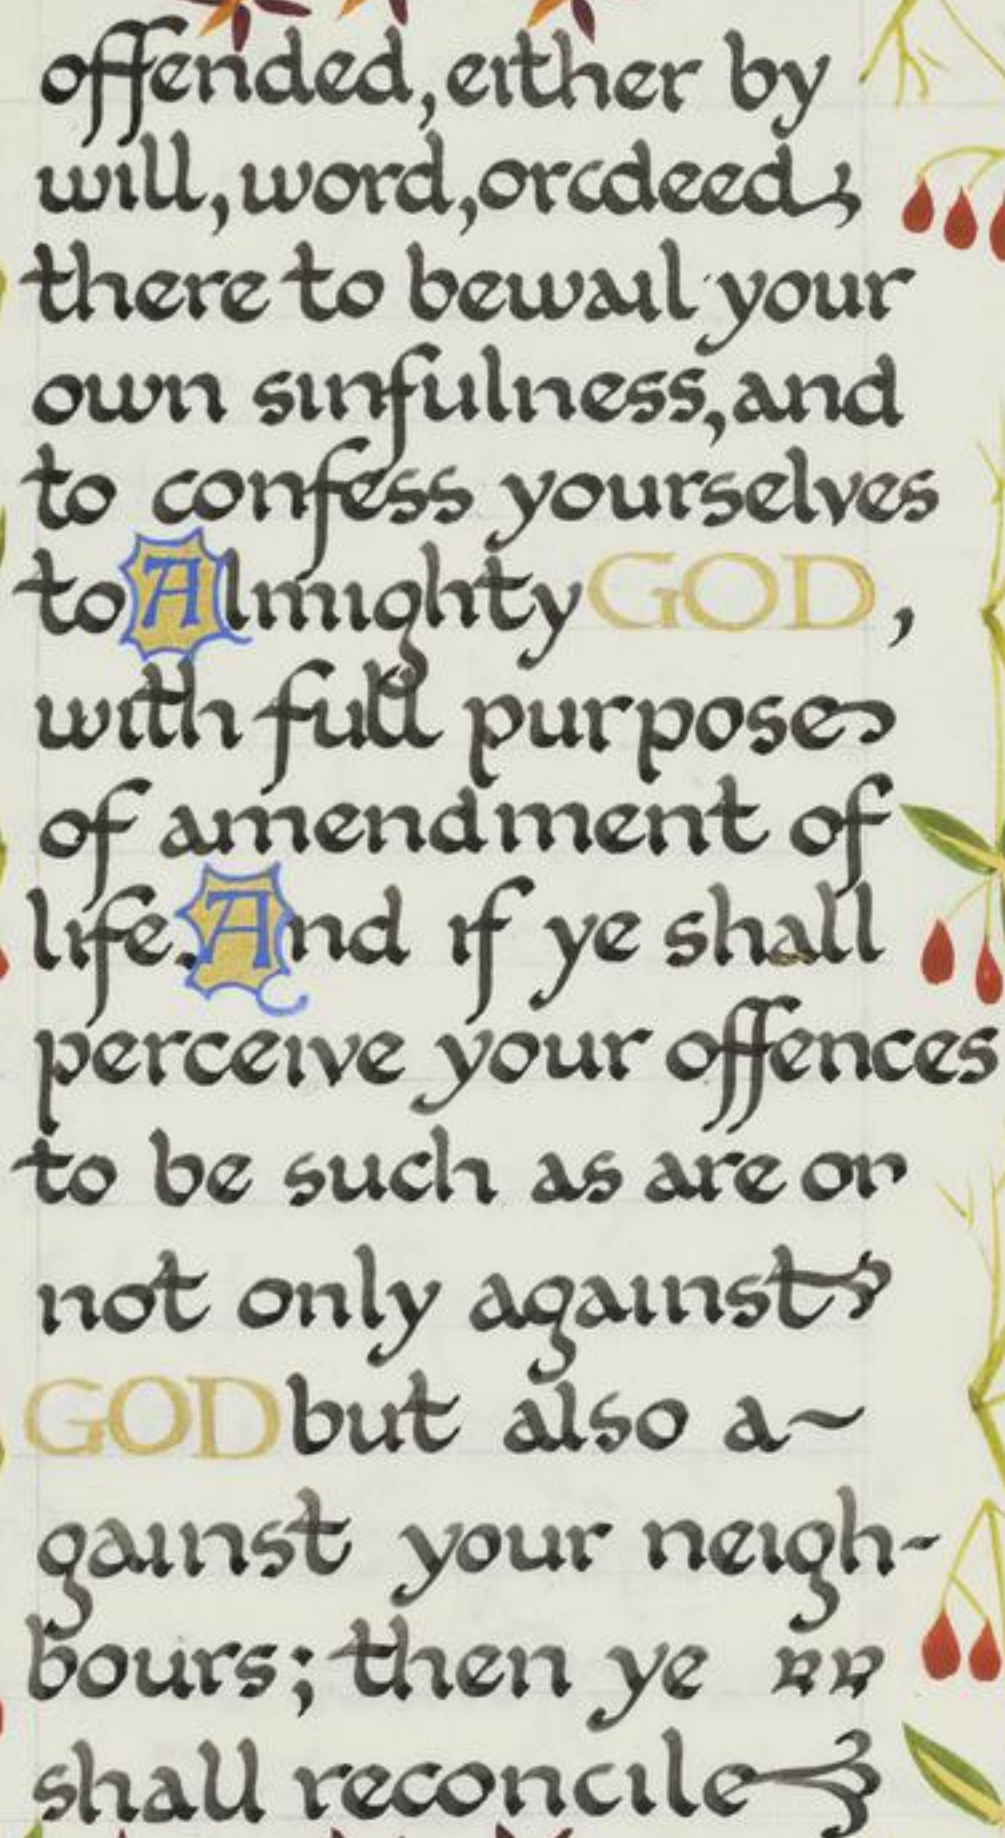 offended, either by
will, word, or deed,
there to bewail your
own sinfulness, and
to confess yourselves
to Almighty GOD,
with full purpose
of amendment of
life. And if ye shall
perceive your offences
to be such as are on
not only against
GOD but also a~
gainst your neigh-
bours; then ye
shall reconcile